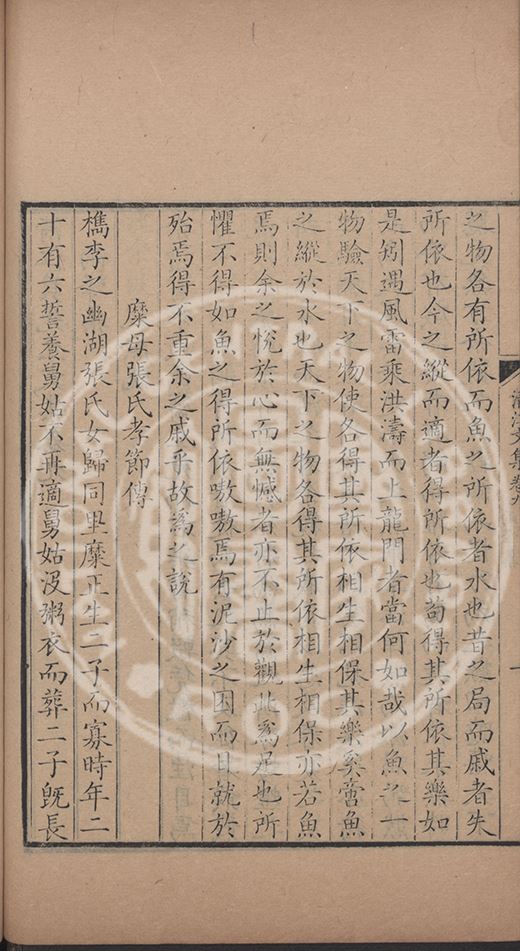 之物各有所依而魚之所依者水也昔之局而戚者失
所依也今之縱而適者得所依也苟得其所依其樂如
是矧遇風雷乘洪濤而上龍門者當何如哉以魚之一
物驗天下之物使各得其所依相生相保其樂奚啻魚
之縱於水也天下之物各得其所依相生相保亦若魚
焉則余之悅於心而無憾者亦不止於觀此為足也所
懼不得如魚之得所依嗷嗷焉有泥沙之困而日就於
殆焉得不重余之戚乎故為之說
糜母張氏孝節傳
檇李之幽湖張氏女歸同里糜正生二子而寡時年二
十有六誓養舅姑不再適舅姑沒粥衣而葬二子旣長